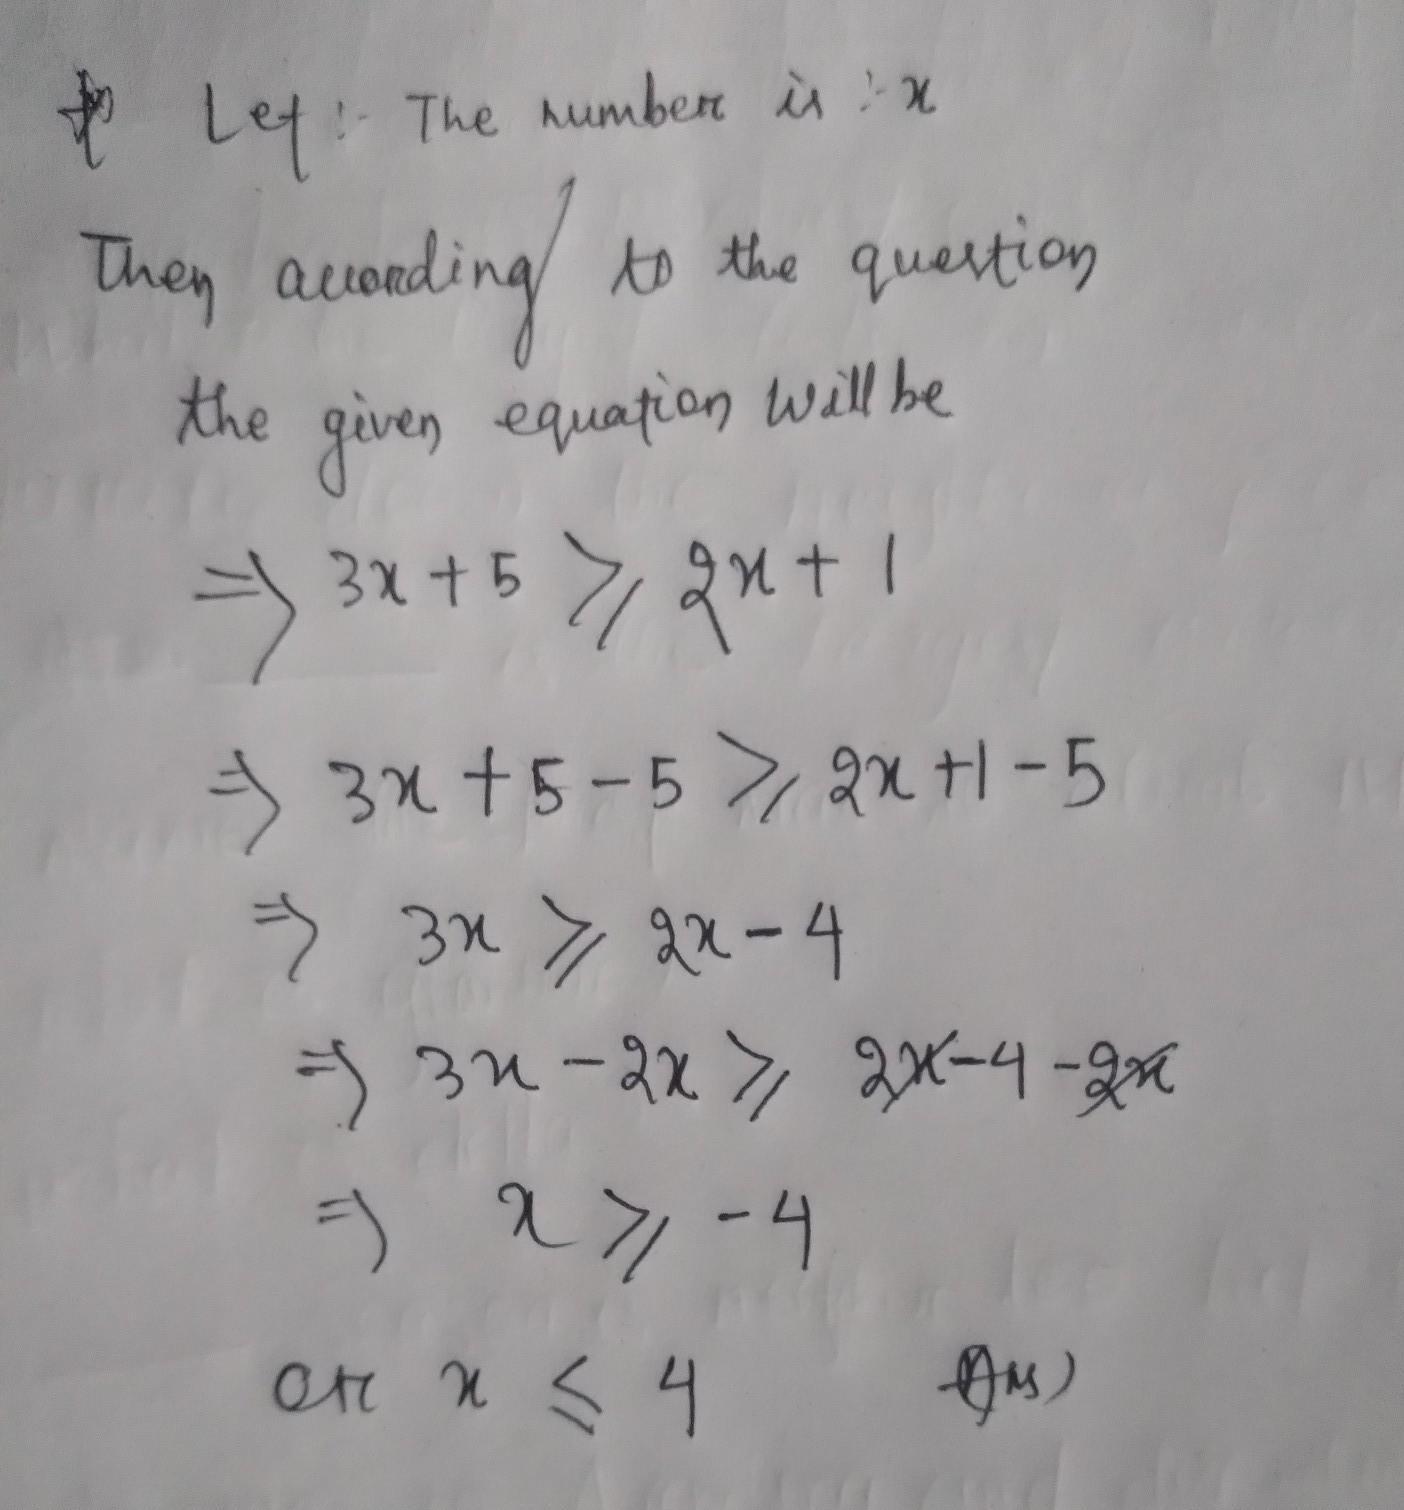 Let :- The number is :- x
Then according to the question
the given equation will be
⇒ 3x + 5 ⩾ 2x + 1
⇒ 3x + 5 - 5 ⩾ 2x + 1 - 5
⇒ 3x ⩾ 2x - 4
⇒ 3x - 2x ⩾ 2x - 4 - 2x
⇒ x ⩾ - 4
or x ⩽ 4 Ans)